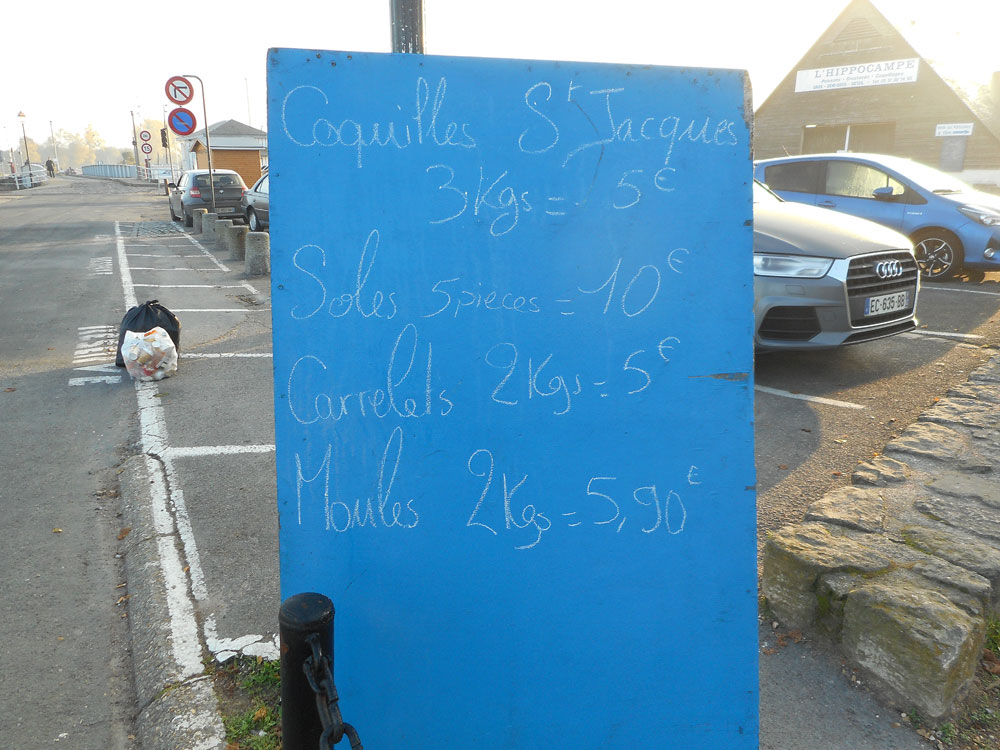 Coquilles St Jacques
3Kgs = 5€
Soles 5 pieces = 10€
Carrelets 2Kgs = 5€
Moules 2Kgs = 5,90€
L'HIPPOCAMPE
EC-635-BB
15